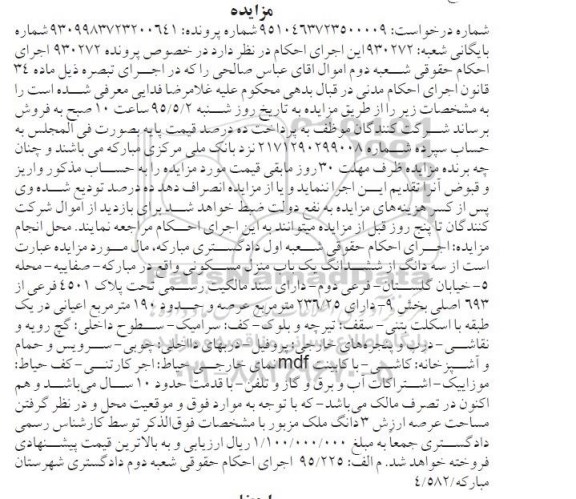 مزایده
شماره درخواست: ۹۵۱۰۴۶۳۷۲۳۵۰۰۰۰۹ شماره پرونده: ۹۳۰۹۹۸۳۷۲۳۲۰۰۶۴۱ شماره
بایگانی شعبه: ۹۳۰۲۷۲ این اجرای احکام در نظر دارد در خصوص پرونده ۹۳۰۲۷۲ اجرای
احکام حقوقی شعبه دوم اموال اقای عباس صالحی را که در اجرای تبصره ذیل ماده ۳۴
قانون اجرای احکام مدنی در قبال بدهی محکوم علیه غلامرضا فدایی معرفی شده است را
به مشخصات زیر را از طریق مزایده به تاریخ روز شنبه ۹۵/۵/۲ ساعت ۱۰ صبح به فروش
برساند شرکت کنندگان موظف به پرداخت ده درصد قیمت پایه بصورت فی المجلس به
حساب سپرده شماره ۲۱۷۱۲۹۰۲۹۹۰۰۸ نزد بانک ملی مرکزی مبارکه می باشند و چنان
چه برنده مزایده ظرف مهلت ۳۰ روز مابقی قیمت مورد مزایده را به حساب مذکور واریز
و قبوض آنرا تقدیم این اجرا ننماید و یا از مزایده انصراف دهد ده درصد تودیع شده وی
پس از کسر هزینه‌های مزایده به نفع دولت ضبط خواهد شد برای بازدید از اموال شرکت
کنندگان تا پنج روز قبل از مزایده میتوانند به این اجرای احکام مراجعه نمایند. محل انجام
مزایده: اجرای احکام حقوقی شعبه اول دادگستری مبارکه، مال مورد مزایده عبارت
است از سه دانگ از ششدانگ یک باب منزل مسکونی واقع در مبارکه- صفاییه- محله
۵- خیابان گلستان- فرعی دوم- دارای سند مالکیت رسمی تحت پلاک ۴۵۰۱ فرعی از
۶۹۳ اصلی بخش ۹- دارای ۲۳۶/۲۵ مترمربع عرصه و حدود ۱۹۰ مترمربع اعیانی در یک
طبقه با اسکلت بتنی- سقف: تیرچه و بلوک- کف: سرامیک- سطوح داخلی: گچ رویه و
نقاشی- درب و پنجره‌های خارجی: پروفیل- دربهای داخلی: چوبی- سرویس و حمام
و آشپزخانه: کاشی- با کابینت mdf نمای خارجی و حیاط: اجر کارتنی- کف حیاط:
موزاییک- اشتراکات آب و برق و گاز و تلفن- با قدمت حدود ۱۰ سال می‌باشد و هم
اکنون در تصرف مالک می‌باشد- که با توجه به موارد فوق و موقعیت محل و در نظر گرفتن
مساحت عرصه ارزش ۳ دانگ ملک مزبور با مشخصات فوق‌الذکر توسط کارشناس رسمی
دادگستری جمعا به مبلغ ۱/۱۰۰/۰۰۰/۰۰۰ ریال ارزیابی و به بالاترین قیمت پیشنهادی
فروخته خواهد شد. م الف: ۹۵/۲۲۵ اجرای احکام حقوقی شعبه دوم دادگستری شهرستان
مبارکه/۴/۵۸۲